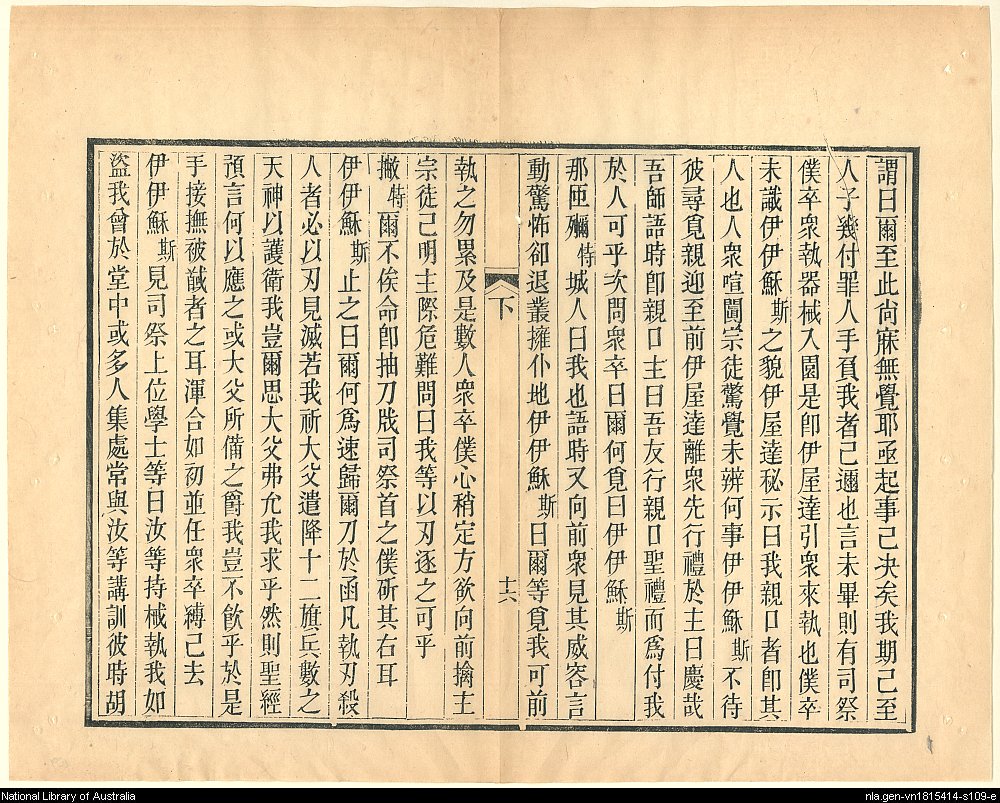 謂曰爾至此尚寐無覺耶亟起事已决矣我期已至
人子幾付罪人手負我者已邇也言未畢則有司祭
僕卒衆執器械入園是卽伊屋達引衆來執也僕卒
未識伊伊穌斯之貌伊屋達秘示曰我親口者卽其
人也人衆喧闐宗徒驚覺未辨何事伊伊穌斯不待
彼尋覓親迎至前伊屋達離衆先行禮於主曰慶哉
吾師語時卽親口主曰吾友行親口聖禮而爲付我
於人可乎次問衆卒曰爾何覓曰伊伊穌斯
那匝彌特城人曰我也語時又向前衆見其威容言
動驚怖卻退叢擁仆地伊伊穌斯曰爾等覓我可前
下
十六
執之勿累及是數人衆卒僕心稍定方欲向前擒主
宗徒已明主際危難問曰我等以刃逐之可乎
撇特爾不俟命卽抽刀戕司祭首之僕斫其右耳
伊伊穌斯止之曰爾何爲速歸爾刀於函凡執刃殺
人者必以刃見滅若我祈大父遣降十二旗兵數之
天神以護衛我豈爾思大父弗允我求乎然則聖經
預言何以應之或大父所備之爵我豈不飲乎於是
手接撫被馘者之耳渾合如初並任衆卒縛已去
伊伊穌斯見司祭上位學士等曰汝等持械執我如
盜我曾於堂中或多人集處常與汝等講訓彼時胡
National Library of Australia
nla.gen-vn1815414-s109-e